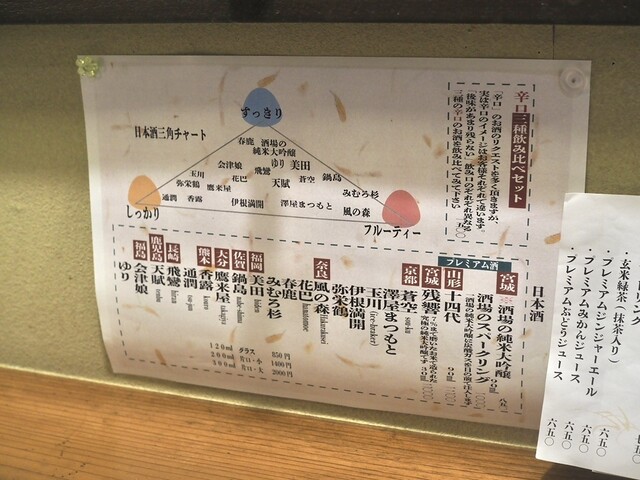 すっきり
日本酒三角チャート
春鹿
酒場の
純米大吟醸
ゆり
美田
会津娘
飛鸞
玉川
花巴
天賦
蒼空
鍋島
弥栄鶴
鷹来屋
みむろ杉
通潤
香露
伊根満開
澤屋まつもと
風の森
しっかり
フルーティー
辛口三種飲み比べセット
「辛口」のお酒のリクエストを多く頂きますが、
実は辛口のイメージはお客様それぞれで違います。
「後味があまり残らない」飲み口のそれぞれ異なる
三種の辛口のお酒を飲み比べてみて下さい
日本酒
プレミアム酒
宮城
酒場の純米大吟醸 90ml
酒場のスパークリング
山形
十四代 90ml
宮城
残響
京都
蒼空 sou-ku
澤屋まつもと
玉川 (ice-breaker)
伊根満開
弥栄鶴
奈良
風の森
花巴 hanatomoe
春鹿
みむろ杉
福岡
美田 biden
佐賀
鍋島
大分
鷹来屋 takakiya
熊本
香露 kouro
通潤
長崎
飛鸞 hiran
鹿児島
天賦 tenbu
福島
会津娘
ゆり
120ml グラス 850円
200ml 片口・小 1400円
300ml 片口・大 2000円
・玄米緑茶(抹茶入り)
・プレミアムジンジャーエール 六五〇
・プレミアムみかんジュース 六五〇
・プレミアムぶどうジュース 六五〇